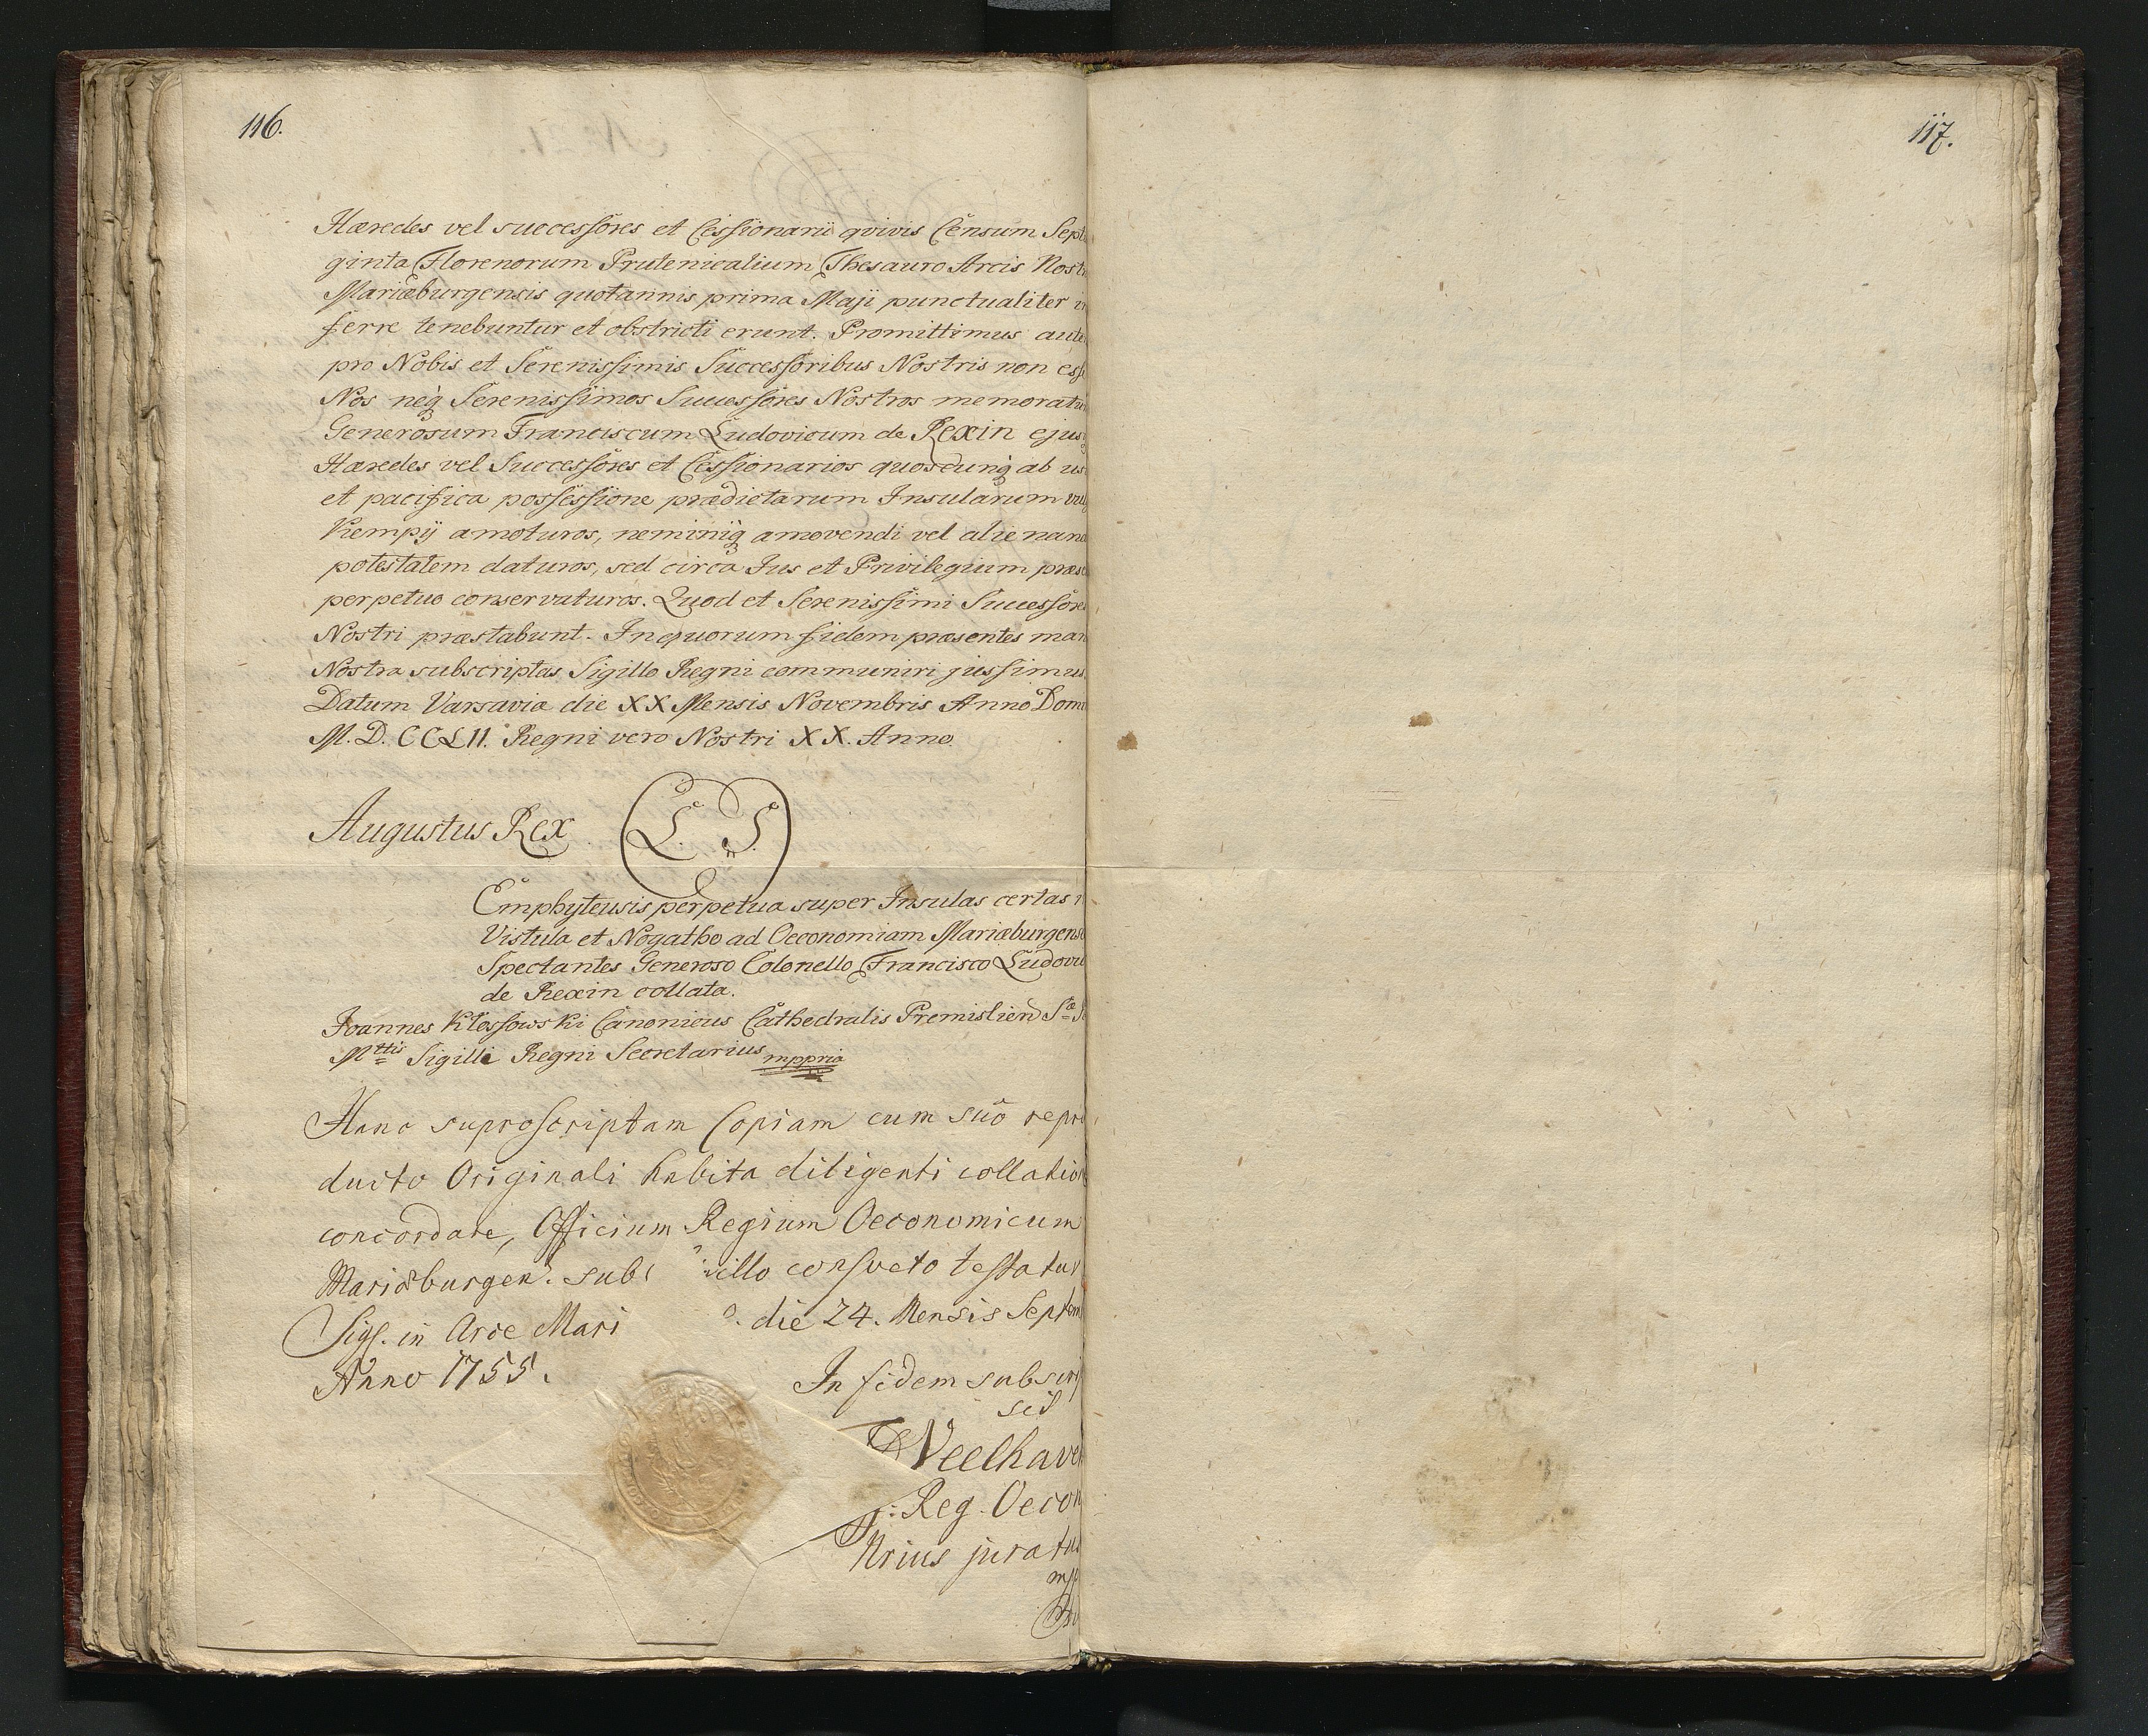 116.
Hæredes vel successores et Cessionarii qvivis Censum Sept
ginta Florenorum Prutenicalium Thesauro Arcis Nost
Mariæburgensis quotannis prima Maji punctualiter i
ferre tenebuntur et obstricti erunt. Promittimus aute
pro Nobis et Serenissimis Successoribus Nostris non ess
Nos neq Serenissimos Successores Nostros memoratu
Generosum Franciscum Ludovicum de Rexin ejus
Hæredes vel Successores et Cessionarios quoscunq ab us
et pacifica possessione prædictarum Insularum vul
Kempÿ amoturos, neminiq amovendi vel alienan
potestatem daturos, sed circa Jus et Privilegium præs
perpetuo conservaturos. Quod et Serenissimi Successore
Nostri præstabunt. In quorum fidem præsentes man
Nostra subscriptas Sigillo Regni communiri jussimus.
Datum Varsaviæ die XX Mensis Novembris Anno Domi
M. D. CCLII. Regni vero Nostri XX. Anno.
Augustus Rex. L. S.
Emphyteusis perpetua super Insulas certas i
Vistula et Nogatho ad Oeconomiam Mariæburgens
Spectantes Generoso Colonello Francisco Ludovi
de Rexin collata.
Joannes Kłossowski Canonicus Cathedralis Premislien Stæ
Mttis Sigilli Regni Secretarius mppria
Hanc suproscriptam Copiam cum suo repro
ducto Originali habita diligenti collation
concordare, Officium Regium Oeconomicum
Mariæburgen. sub illo consveto testatur
Sigs. in Arce Mari die 24. Mensis Septem
Anno 1755.
In fidem subscri
sit
Veelhave
Reg. Oecon
Nrius juratus
mp
117.